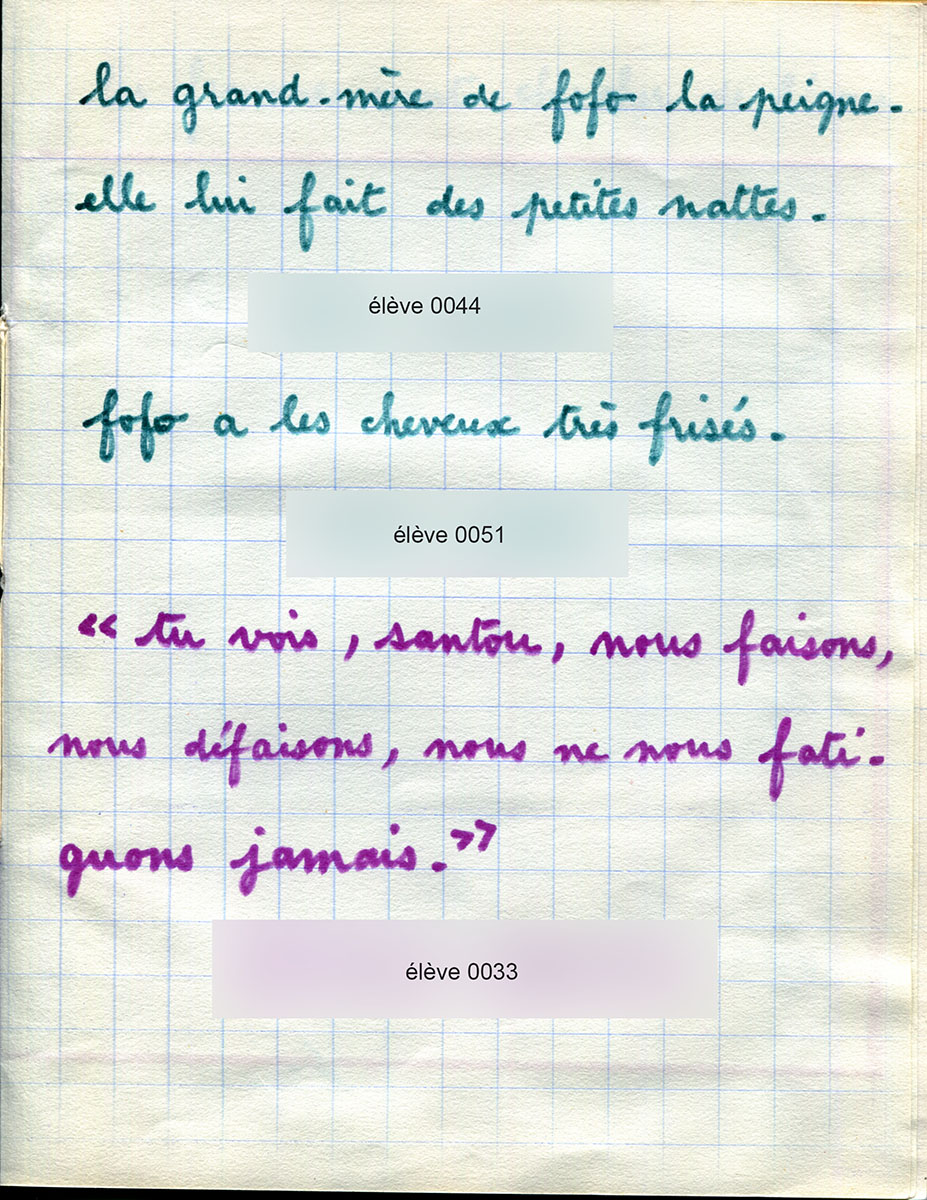 la grand-mère de fofo la peigne.
elle lui fait des petites nattes.
élève 0044
fofo a les cheveux très frisés.
élève 0051
« tu vois, santou, nous faisons,
nous défaisons, nous ne nous fati-
guons jamais. »
élève 0033